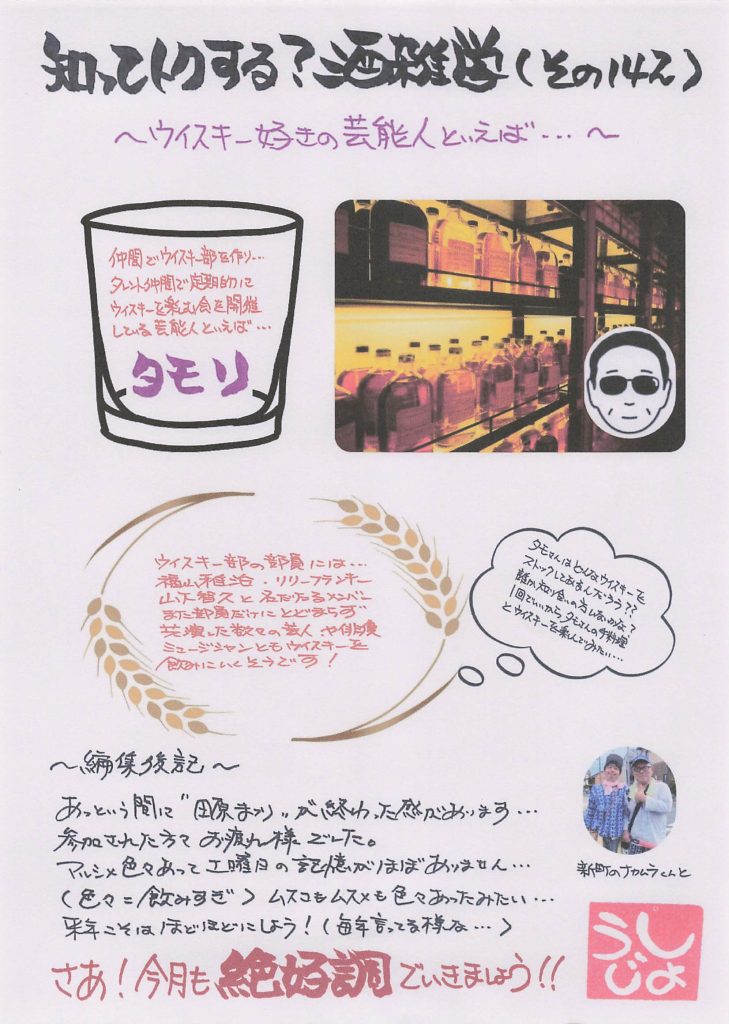 知ってトクする？酒雑学（その142）
～ウイスキー好きの芸能人といえば…～
仲間でウイスキー部を作り…
タレント仲間で定期的に
ウイスキーを楽しむ会を開催
している芸能人といえば…
タモリ
ウイスキー部の部員には…
福山雅治・リリーフランキー
山下智久と名だたるメンバー
また部員だけにとどまらず
共演した数々の芸人や俳優
ミュージシャンともウイスキーを
飲みにいくそうです！
タモさんはどんなウイスキーを
ストックしてあるんだろう？？
誰か知り合いの方いないかな？
1回でいいからタモさんの手料理
とウイスキーを楽しんでみたい…
～編集後記～
あっという間に“田原まつり”が終わった感があります…
参加された方々お疲れ様でした。
アルシメ色々あって土曜日の記憶がほぼありません…
（色々＝飲みすぎ）ムスコもムスメも色々あったみたい…
来年こそはほどほどにしよう！（毎年言ってる様な…）
新町のナカムラくんと
さあ！今月も絶好調でいきましょう！！
うじ
しょ